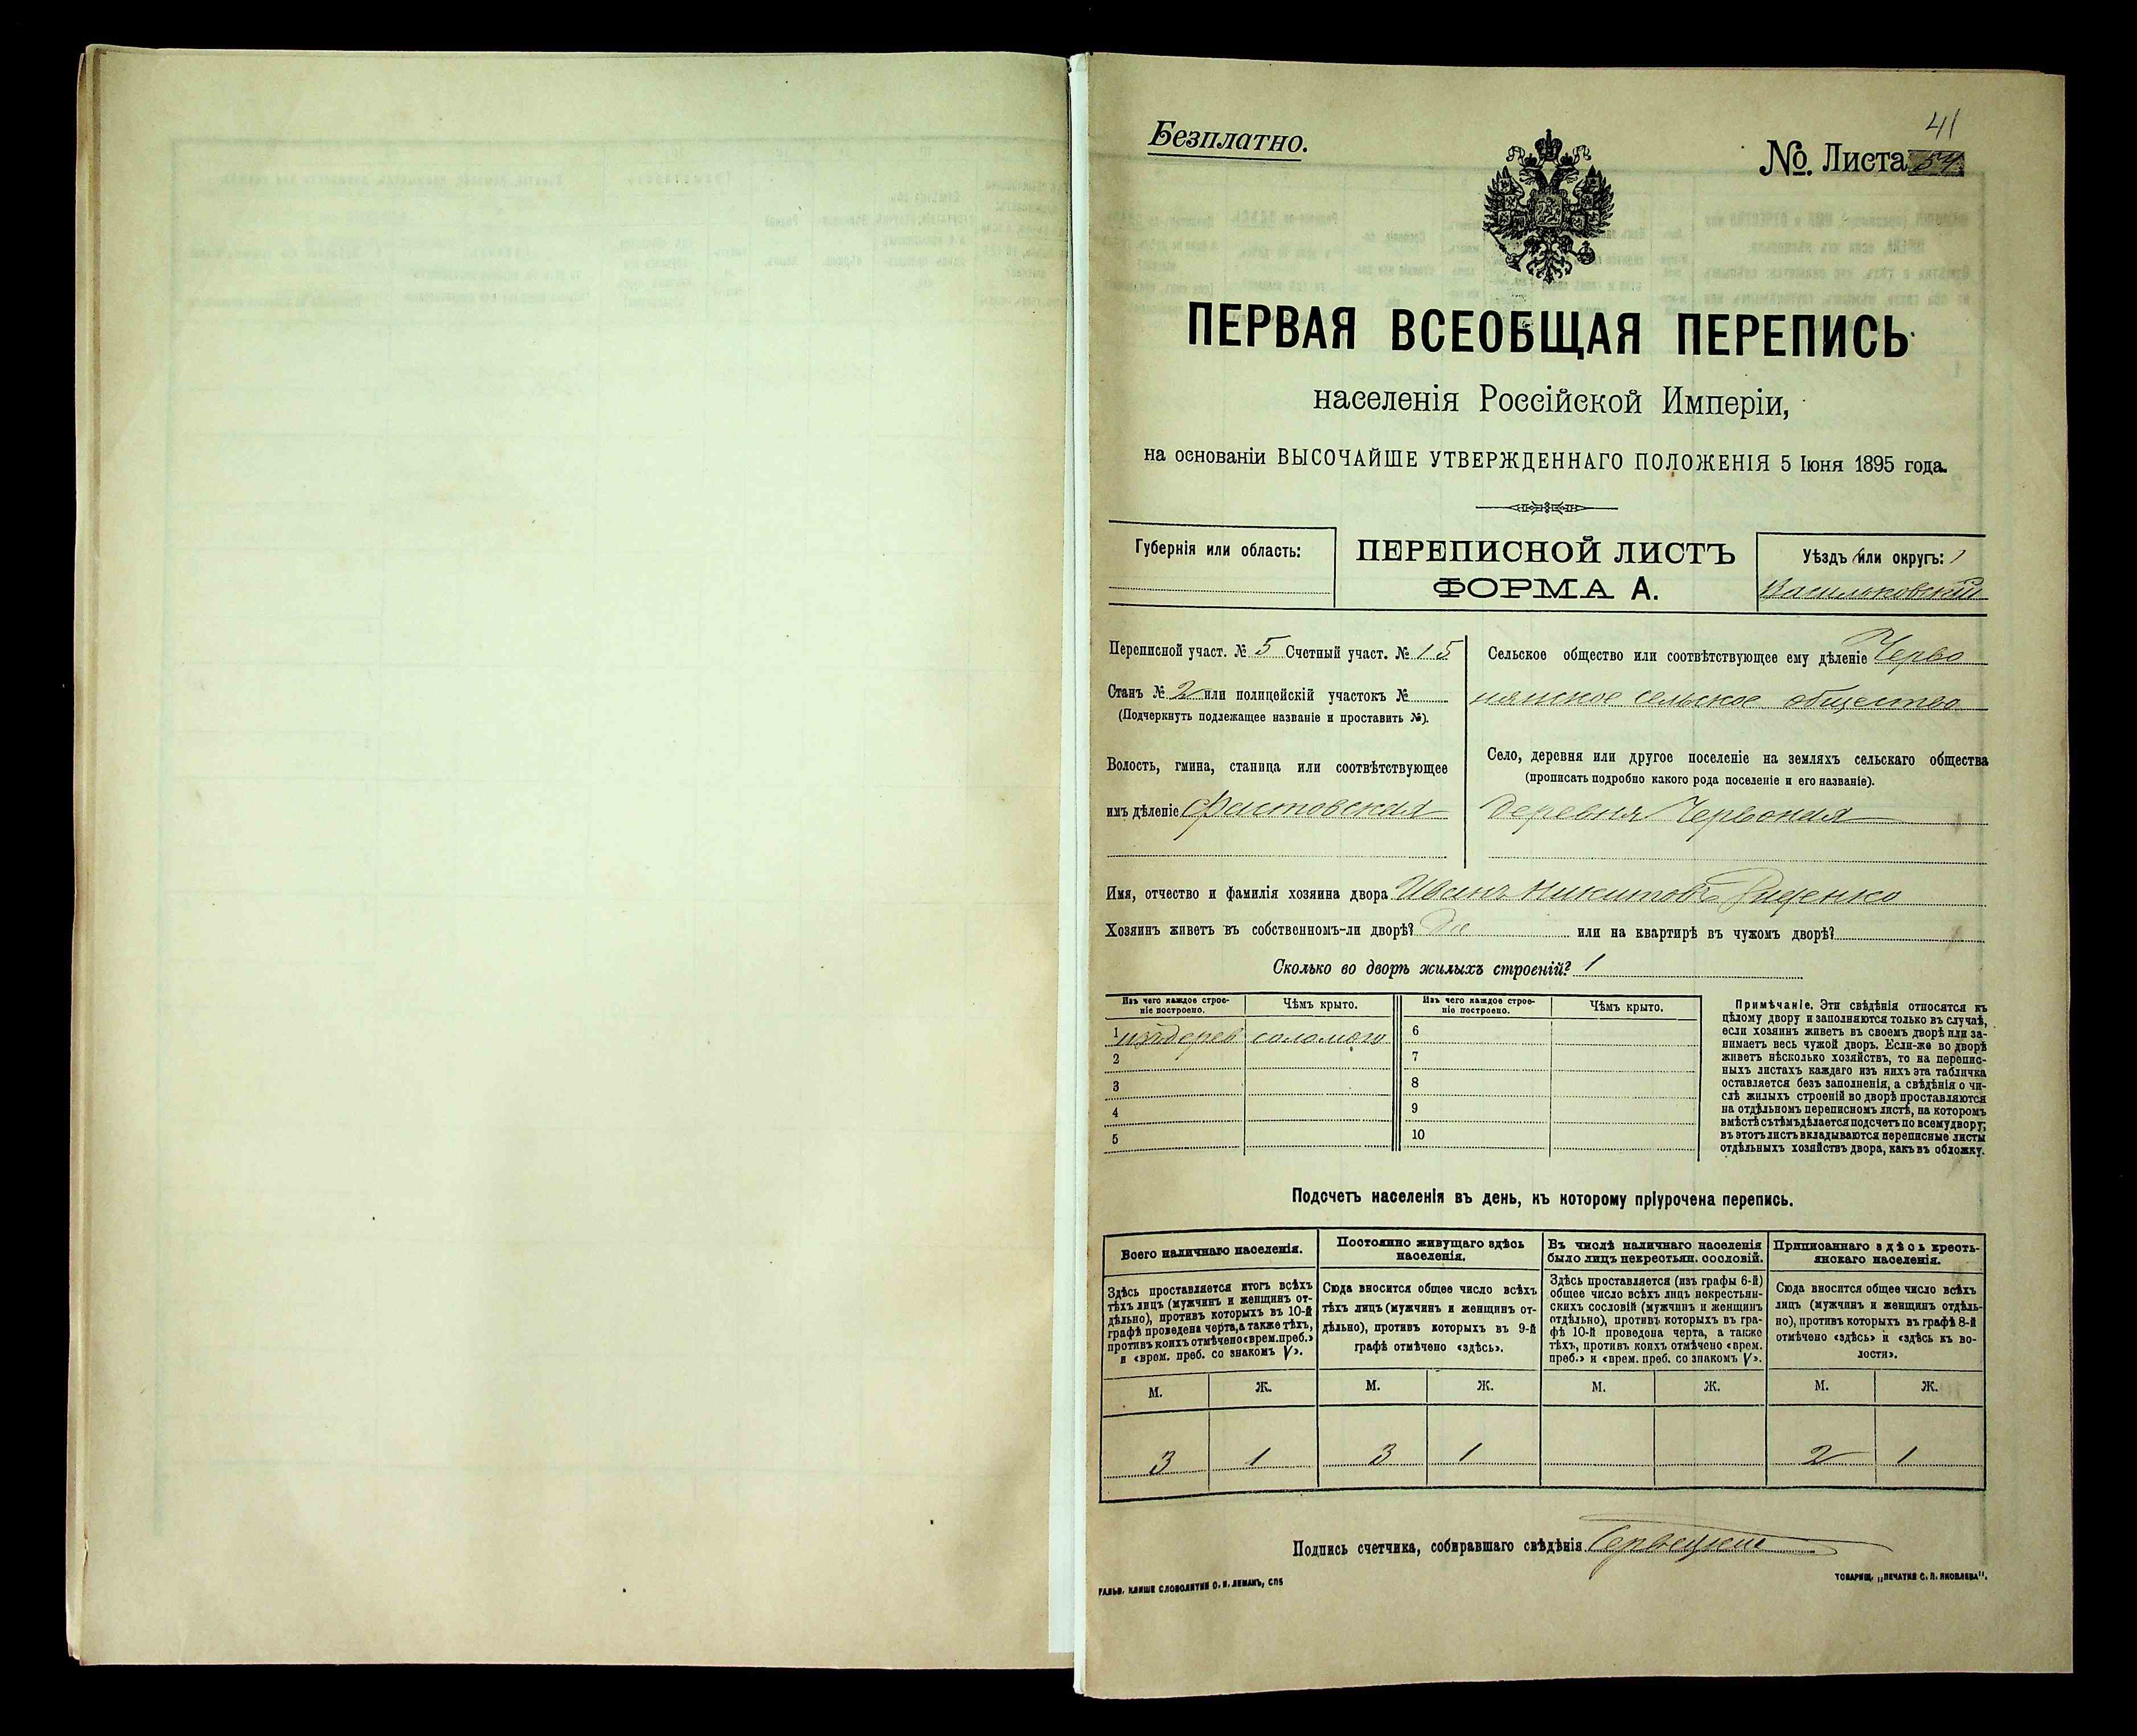 41
Безплатно.
№. Листа 54
ПЕРВАЯ ВСЕОБЩАЯ ПЕРЕПИСЬ
населенія Россійской Имперіи,
на основаніи ВЫСОЧАЙШЕ УТВЕРЖДЕННАГО ПОЛОЖЕНІЯ 5 Іюня 1895 года.
Губернія или область:
ПЕРЕПИСНОЙ ЛИСТЪ
ФОРМА А.
Уѣздъ или округъ:
Васильковскій
Переписной участ. № 5 Счетный участ. № 15
Станъ № 2 или полицейскій участокъ №
(Подчеркнуть подлежащее названіе и проставить №).
Волость, гмина, станица или соотвѣтствующее
имъ дѣленіе Фастовская
Сельское общество или соотвѣтствующее ему дѣленіе Черво
нянское сельское общество
Село, деревня или другое поселеніе на земляхъ сельскаго общества
(прописать подробно какого рода поселеніе и его названіе).
деревня Червоная
Имя, отчество и фамилія хозяина двора Иванъ Никитовъ
Хозяинъ живетъ въ собственномъ-ли дворѣ? Да или на квартирѣ въ чужомъ дворѣ?
Сколько во дворѣ жилыхъ строеній? 1
Изъ чего каждое строе-
ніе построено.
Чѣмъ крыто.
Изъ чего каждое строе-
ніе построено.
Чѣмъ крыто.
1 изъ дерев соломою 6
2 7
3 8
4 9
5 10
Примѣчаніе. Эти свѣдѣнія относятся къ
цѣлому двору и заполняются только въ случаѣ,
если хозяинъ живетъ въ своемъ дворѣ или за-
нимаетъ весь чужой дворъ. Если-же во дворѣ
живетъ нѣсколько хозяйствъ, то на перепис-
ныхъ листахъ каждаго изъ нихъ эта табличка
оставляется безъ заполненія, а свѣдѣнія о чи-
слѣ жилыхъ строеній во дворѣ проставляются
на отдѣльномъ переписномъ листѣ, на которомъ
вмѣстѣ съ тѣмъ дѣлается подсчетъ по всему двору;
въ этотъ листъ вкладываются переписные листы
отдѣльныхъ хозяйствъ двора, какъ въ обложку.
Подсчетъ населенія въ день, къ которому пріурочена перепись.
Всего наличнаго населенія.
Здѣсь проставляется итогъ всѣхъ
тѣхъ лицъ (мужчинъ и женщинъ от-
дѣльно), противъ которыхъ въ 10-й
графѣ проведена черта, а также тѣхъ,
противъ коихъ отмѣчено «врем. преб.»
и «врем. преб. со знакомъ V».
Постоянно живущаго здѣсь
населенія.
Сюда вносится общее число всѣхъ
тѣхъ лицъ (мужчинъ и женщинъ от-
дѣльно), противъ которыхъ въ 9-й
графѣ отмѣчено «здѣсь».
Въ числѣ наличнаго населенія
было лицъ некрестьян. сословій.
Здѣсь проставляется (изъ графы 6-й)
общее число всѣхъ лицъ некрестьян-
скихъ сословій (мужчинъ и женщинъ
отдѣльно), противъ которыхъ въ гра-
фѣ 10-й проведена черта, а также
тѣхъ, противъ коихъ отмѣчено «врем.
преб.» и «врем. преб. со знакомъ V».
Приписаннаго здѣсь кресть-
янскаго населенія.
Сюда вносится общее число всѣхъ
лицъ (мужчинъ и женщинъ отдѣль-
но), противъ которыхъ въ графѣ 8-й
отмѣчено «здѣсь» и «здѣсь къ во-
лости».
М. Ж. М. Ж. М. Ж. М. Ж.
3 1 3 1 2 1
Подпись счетчика, собиравшаго свѣдѣнія
ГАЛЬВ. КЛИШЕ СЛОВОЛИТНИ О. И. ЛЕМАНЪ, СПБ
ТОВАРИЩ. „ПЕЧАТНЯ С. П. ЯКОВЛЕВА".